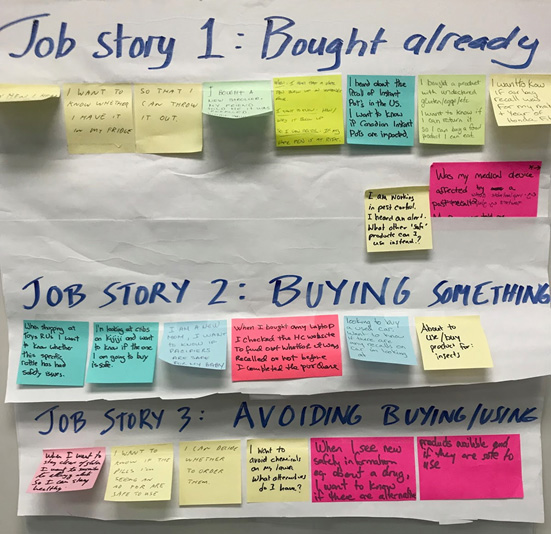 Job story 1: Bought already
I WANT TO
KNOW WHETHER
I HAVE IT
IN MY FRIDGE
SO THAT I
CAN THROW
IT OUT.
I BOUGHT A
I heard about the
Recall of Instant
Pots in the US.
I want to know
if Canadian Instant
Pots are impacted.
I bought a product
with undeclared
gluten/eggs/etc
I want to know if
I can return it
so I can buy a food
product I can eat.
I want to know
if
recall was
for my
+ Year of
I am working
in pest control.
I heard an alert.
What other "safe"
products can I
use instead?
Was my medical device
affected by a
JOB STORY 2: BUYING SOMETHING
When shopping at
Toys R Us I want
to know whether
this specific
rattle has had
safety issues.
I'm looking at cribs
on Kijiji and want
to know if the one
I am going to buy
is safe.
I AM A NEW
MOM, I WANT
TO KNOW IF
PACIFIERS
ARE SAFE
FOR MY BABY
When I bought my laptop
I checked the HC website
to find out whether it was
Recalled or not before
I completed the purchase
Looking to buy
a used car.
Want to know
if there are
any recalls on
car I'm looking at
About to
use/buy
product for
insects
JOB STORY 3: AVOIDING BUYING/USING
When I want to
stay clear of
I want
so I can stay
healthy
I WANT TO
KNOW IF THE
PILLS I'M
SEEING AN
AD FOR ARE
SAFE TO USE
I CAN DECIDE
WHETHER
TO ORDER
THEM.
I want to
avoid chemicals
on my lawn.
What alternatives
do I have?
When I see new
safety information
about a drug,
I want to know
if there are alternative
products available and
if they are safe to
use